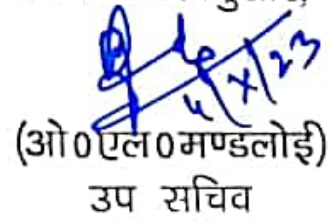 4/X/23
(ओ0एल0मण्डलोई)
उप सचिव